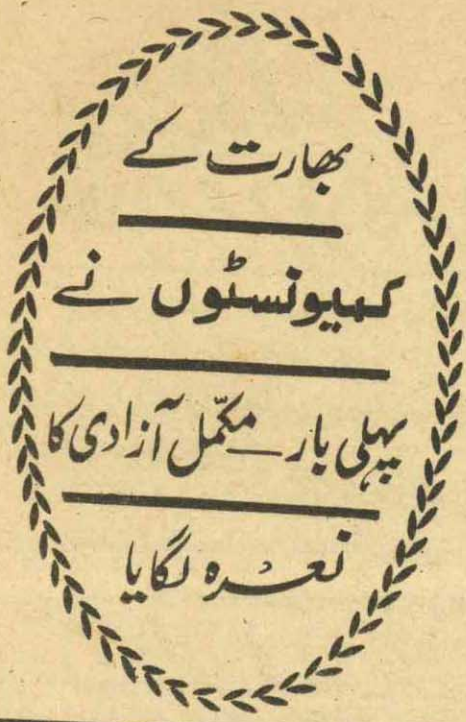 بھارت کے
کمیونسٹوں نے
پہلی بار — مکمّل آزادی کا
نعرہ لگایا